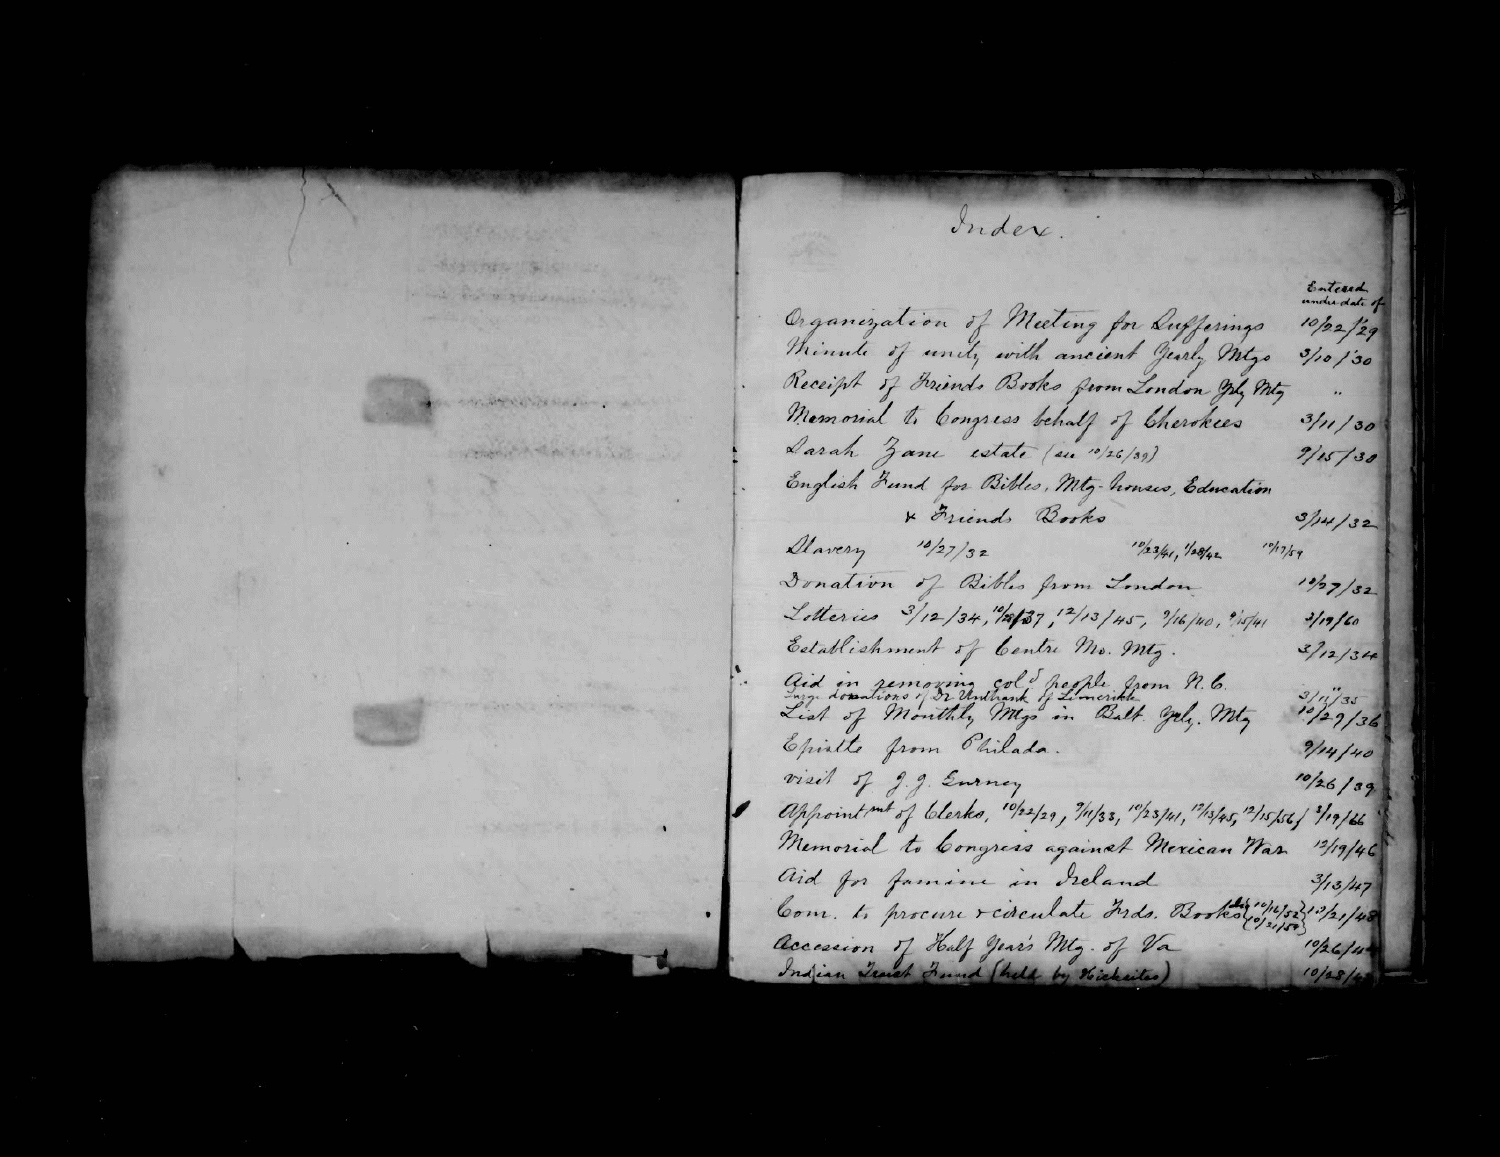 Index.
Entered
under date of
Organization of Meeting for Sufferings 10/22/'29
Minute of unity with ancient Yearly Mtgs 3/10/'30
Receipt of Friends Books from London Yrly Mtg "
Memorial to Congress behalf of Cherokees 3/11/30
Sarah Zane estate (see 10/26/39) 9/15/30
English Fund for Bibles, Mtg-houses, Education
& Friends Books 3/14/32
Slavery 10/27/32 10/23/41, 1/28/42 10/17/59
Donation of Bibles from London 10/27/32
Lotteries 3/12/34, 12/13/45, 9/16/40, 9/15/41 3/19/60
Establishment of Centre Mo. Mtg. 3/12/34
Aid in removing cold people from N.C. "
Large donations of Dr Unthank of Limerick 3/11/35
List of Monthly Mtgs in Balt. Yrly. Mtg 10/29/36
Epistle from Philada. 9/14/40
visit of J. J. Gurney 10/26/39
Appointmt of Clerks, 10/22/29, 9/11/33, 10/23/41, 12/13/45, 12/15/56, 3/19/66
Memorial to Congress against Mexican War 12/19/46
Aid for famine in Ireland 3/13/47
Com. to procure & circulate Frds. Books 10/21/48
Accession of Half Year's Mtg. of Va 10/26/44
Indian Trust Fund (held by Hicksites) 10/28/